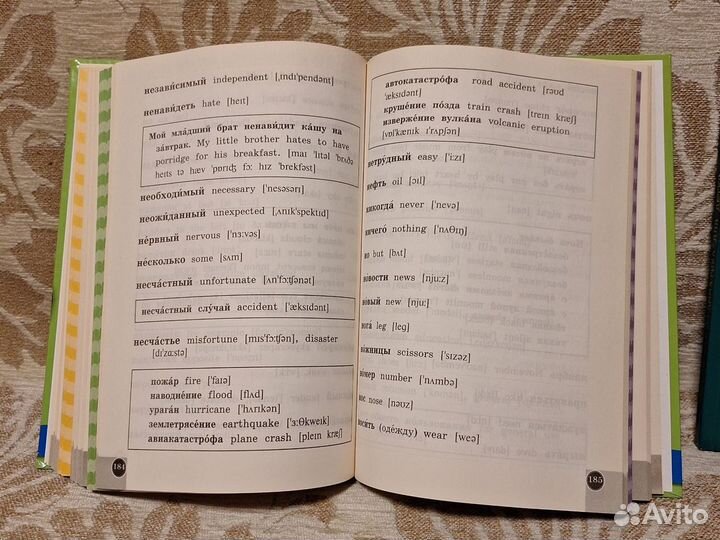 независи́мый independent [ˌɪndɪ'pendənt]
ненави́деть hate [heɪt]
Мой мла́дший брат ненави́дит ка́шу на
за́втрак. My little brother hates to have
porridge for his breakfast. [maɪ 'lɪtəl 'brʌðə
heɪts tə hæv 'pɒrɪʤ fɔ: hɪz 'brekfəst]
необходи́мый necessary ['nesəsərɪ]
неожи́данный unexpected [ʌnɪk'spektɪd]
не́рвный nervous ['nɜ:vəs]
не́сколько some [sʌm]
несча́стный unfortunate [ʌn'fɔ:ʧənət]
несча́стный слу́чай accident ['æksɪdənt]
несча́стье misfortune [mɪs'fɔ:ʧən], disaster
[dɪ'zɑ:stə]
пожа́р fire ['faɪə]
наводне́ние flood [flʌd]
урага́н hurricane ['hʌrɪkən]
землетрясе́ние earthquake ['ɜ:Ɵkweɪk]
авиакатастро́фа plane crash [pleɪn kræʃ]
184
автокатастро́фа road accident [rəʊd
'æksɪdənt]
круше́ние по́езда train crash [treɪn kræʃ]
изверже́ние вулка́на volcanic eruption
[vɒl'kænɪk ɪ'rʌpʃən]
нетру́дный easy ['i:zɪ]
нефть oil [ɔɪl]
никогда́ never ['nevə]
ничего́ nothing ['nʌƟɪŋ]
но but [bʌt]
но́вости news [nju:z]
но́вый new [nju:]
нога́ leg [leg]
но́жницы scissors ['sɪzəz]
но́мер number ['nʌmbə]
нос nose [nəʊz]
носи́ть (оде́жду) wear [weə]
185
Avito